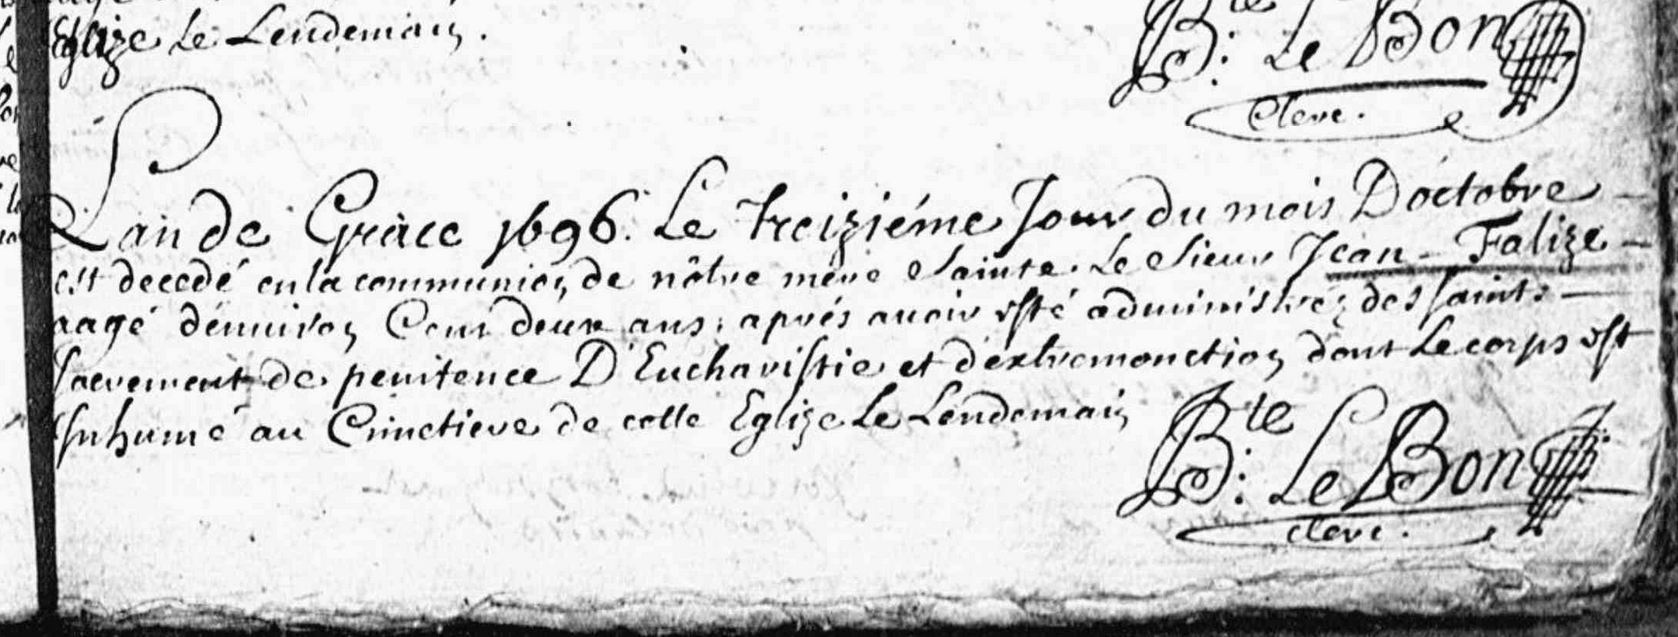 Eglize le Lendemain.
Bte
B: Le Bon
Clerc.
L'an de Grâce 1696. Le treiziéme Jour du mois D'octobre
est decedé en la communion de nôtre mere Sainte. le Sieur Jean Falize
aagé d'environ Cent deux ans, aprés avoir esté administrez des saints
sacrement de penitence D'Euchavistie et d'extremonction dont le corps est
Inhumé au Cimetiere de cette Eglize le Lendemain
Bte
B: Le Bon
clerc.